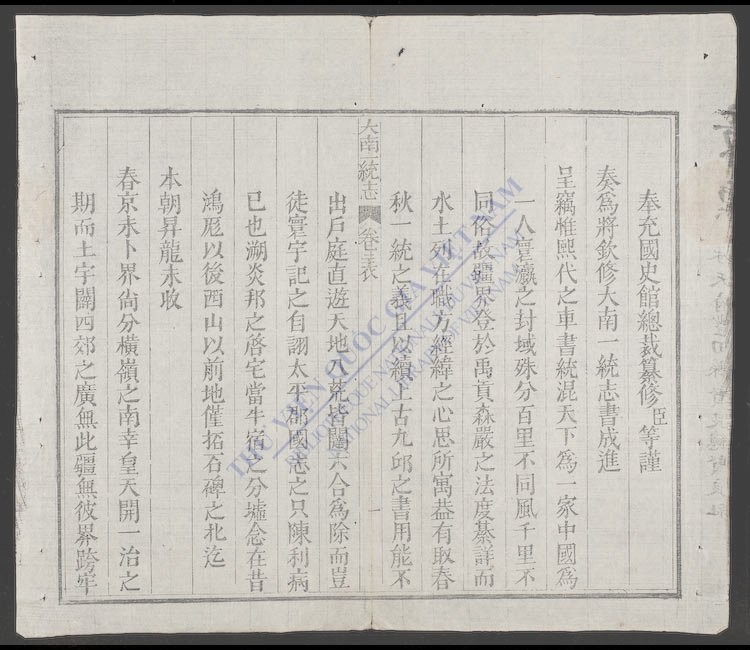 奉充國史館總裁纂修臣等謹
奏爲將欽修大南一統志書成進
呈竊惟熙代之車書統混天下爲一家中國爲
一人寰瀛之封域殊分百里不同風千里不
同俗故疆界登於禹貢森嚴之法度綦詳而
水土列在職方經緯之心思所寓葢有取春
秋一統之義且以續上古九邱之書用能不
大南一統志 卷三 表 一
出戶庭直遊天地八荒皆闢六合爲除而豈
徒寰宇記之自詡太平郡國志之只陳利病
已也溯炎邦之啓宅當牛宿之分墟念在昔
鴻厖以後西山以前地僅拓石碑之北迄
本朝昇龍未收
春京未卜界尙分橫嶺之南幸皇天開一治之
期而土宇闢四郊之廣無此疆無彼界跨牢
THƯ VIỆN QUỐC GIA VIỆT NAM
BIBLIOTHÈQUE NATIONALE DU VIETNAM
NATIONAL LIBRARY OF VIETNAM